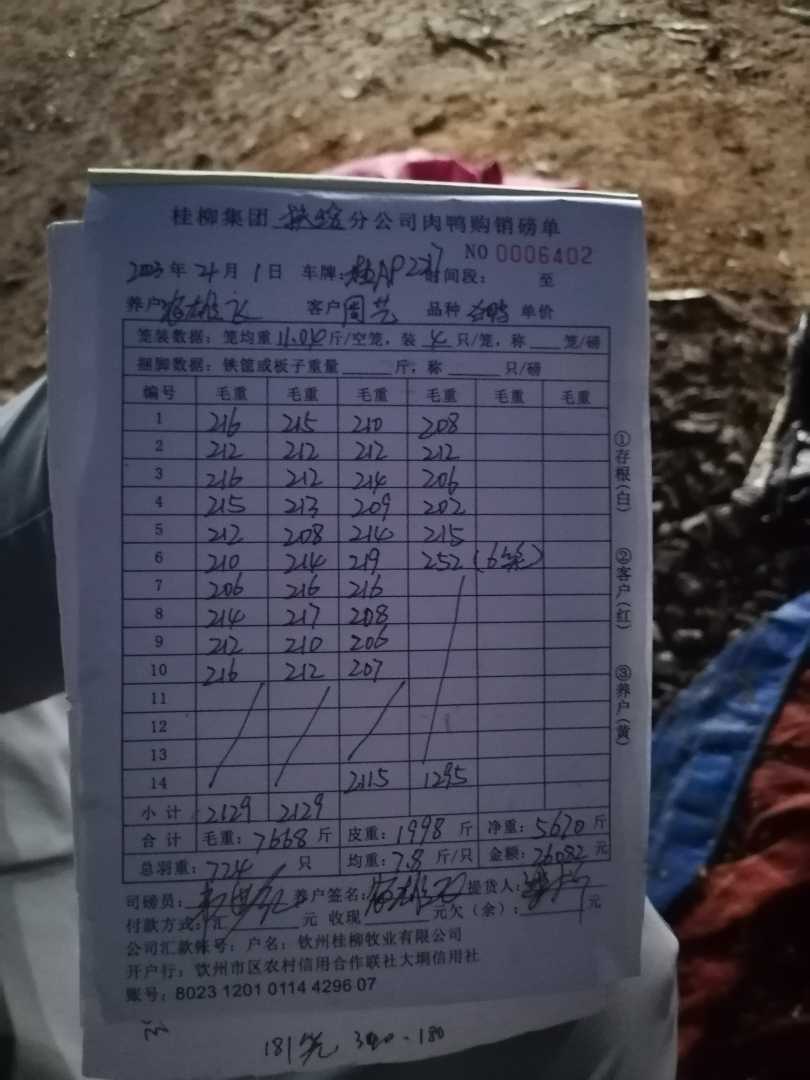 桂柳集团 扶绥 分公司肉鸭购销磅单
NO 0006402
2023 年 4 月 1 日 车牌: 桂AP227 时间段: 至
养户 雄飞 客户 周艺 品种 白鸭 单价
笼装数据: 笼均重 11.04 斤/空笼, 装 4 只/笼, 称 笼/磅
捆脚数据: 铁筐或板子重量 斤, 称 只/磅
编号 毛重 毛重 毛重 毛重 毛重 毛重
1 216 215 210 208
2 212 212 212 212
3 216 212 214 206
4 215 213 209 202
5 212 208 214 215
6 210 214 219 252 (6笼)
7 206 216 216
8 214 217 208
9 212 210 206
10 216 212 207
11
12
13
14 2115 1295
小计 2129 2129
合计 毛重: 7668 斤 皮重: 1998 斤 净重: 5670 斤
总羽重: 724 只 均重: 7.8 斤/只 金额: 26082 元
司磅员: 养户签名: 提货人:
付款方式: 汇 元 收现 元欠(余): 元
公司汇款帐号: 户名: 钦州桂柳牧业有限公司
开户行: 钦州市区农村信用合作联社大垌信用社
账号: 8023 1201 0114 4296 07
①存根(白) ②客户(红) ③养户(黄)
181笼 340-180